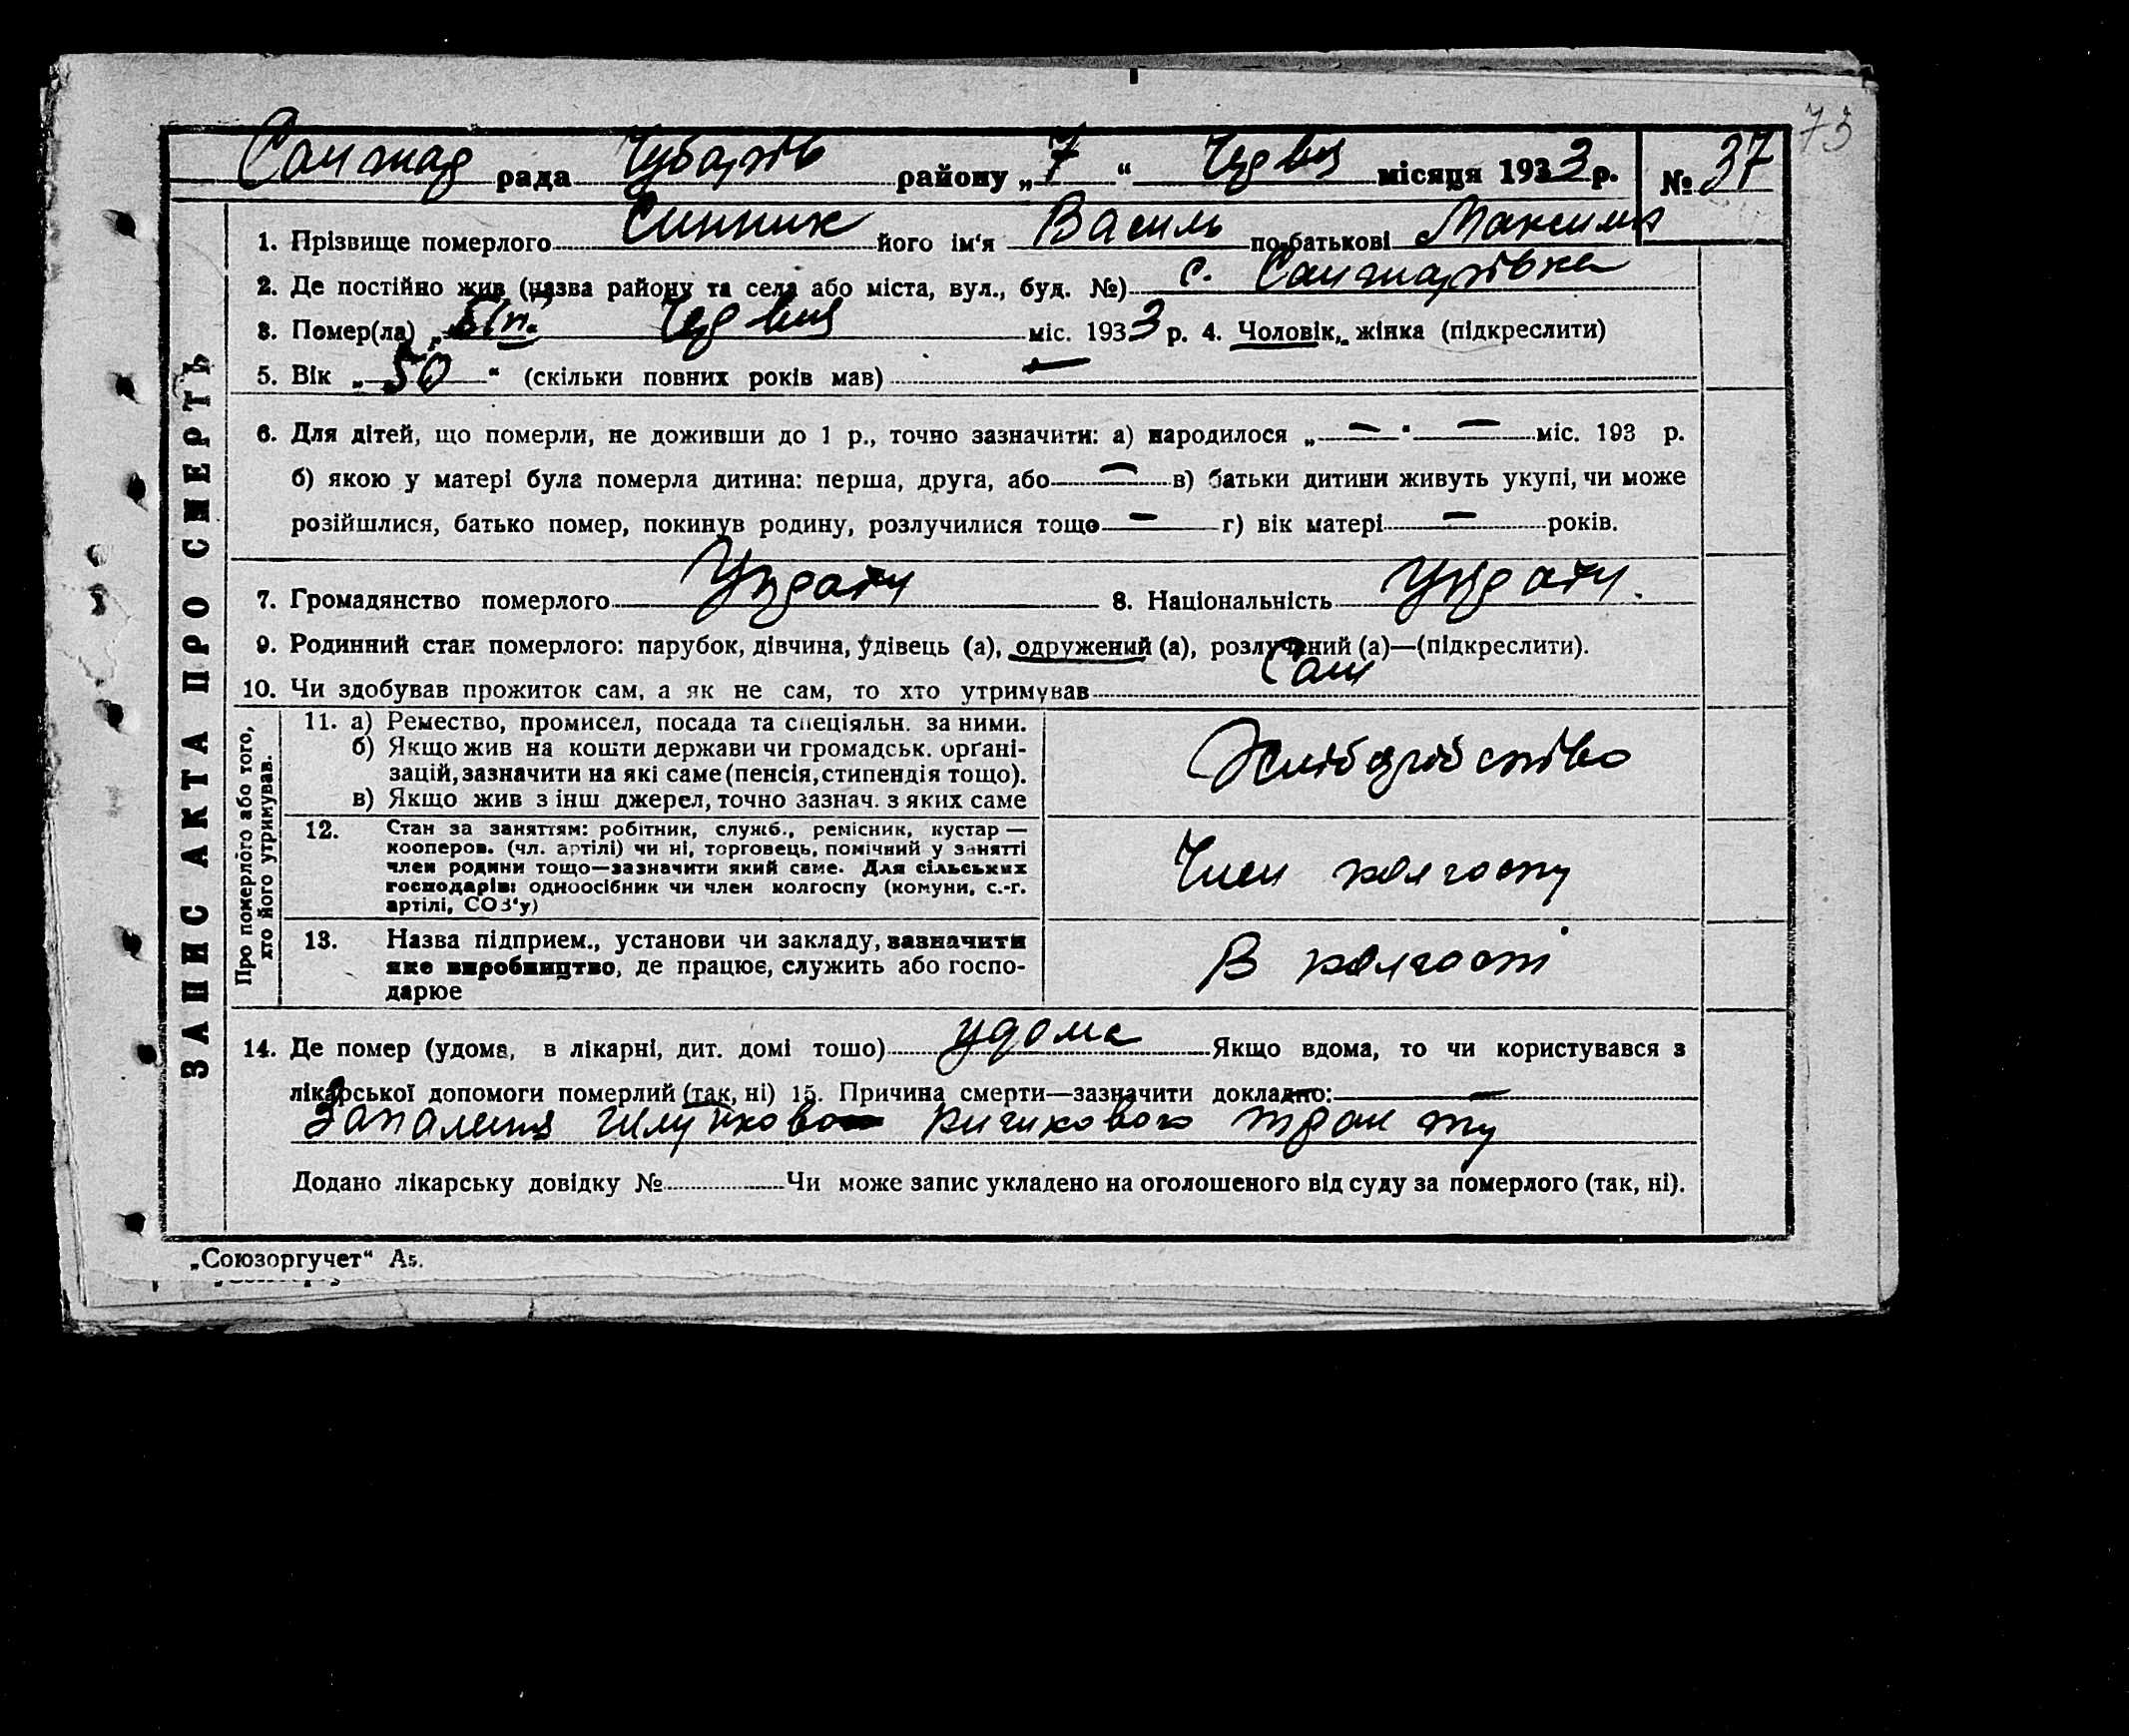 73
Санжар рада Чубарів району „7“ Червня місяця 1933 р. № 37
1. Прізвище померлого Синник його ім'я Василь по батькові Максимів
2. Де постійно жив (назва району та села або міста, вул., буд. №) с. Санжарівка
3. Помер(ла) „ Червня міс. 1933 р. 4. Чоловік, жінка (підкреслити)
5. Вік „50“ (скільки повних років мав) —
6. Для дітей, що померли, не доживши до 1 р., точно зазначити: а) народилося „—“ — міс. 193 р.
б) якою у матері була померла дитина: перша, друга, або — в) батьки дитини живуть укупі, чи може
розійшлися, батько помер, покинув родину, розлучилися тощо — г) вік матері — років.
7. Громадянство померлого 8. Національність
9. Родинний стан померлого: парубок, дівчина, удівець (а), одружений (а), розлучений (а)—(підкреслити).
10. Чи здобував прожиток сам, а як не сам, то хто утримував Сам
ЗАПИС АКТА ПРО СМЕРТЬ
Про померлого або того,
хто його утримував.
11. а) Ремество, промисел, посада та спеціяльн. за ними.
б) Якщо жив на кошти держави чи громадськ. орґані-
зацій, зазначити на які саме (пенсія, стипендія тощо).
в) Якщо жив з інш джерел, точно зазнач. з яких саме
Хліборобство
12. Стан за заняттям: робітник, служб., ремісник, кустар —
кооперов. (чл. артілі) чи ні, торговець, помічний у занятті
член родини тощо—зазначити який саме. Для сільських
господарів: одноосібник чи член колгоспу (комуни, с.-г.
артілі, СОЗ'у)
Член колгоспу
13. Назва підприєм., установи чи закладу, зазначити
яке виробництво, де працює, служить або госпо-
дарює
В колгоспі
14. Де помер (удома, в лікарні, дит. домі тошо) удома Якщо вдома, то чи користувався з
лікарської допомоги померлий (так, ні) 15. Причина смерти—зазначити докладно: —
Запалення шлунково кишкового тракту
Додано лікарську довідку № Чи може запис укладено на оголошеного від суду за померлого (так, ні).
„Союзоргучет“ А5.